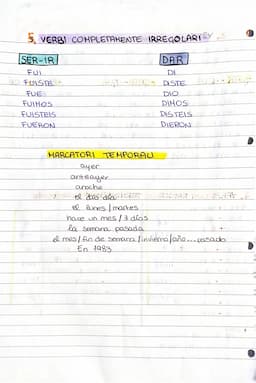 5. VERBI COMPLETAMENTE IRREGOLARI
SER-IR DAR
FUI DI
FUISTE DISTE
FUE DIO
FUIMOS DIMOS
FUISTEIS DISTEIS
FUERON DIERON
MARCATORI TEMPORALI
ayer
anteayer
anoche
el otro día
el lunes/martes
hace un mes/3 días
la semana pasada
el mes/fin de semana/invierno/año...pasado
En 1983